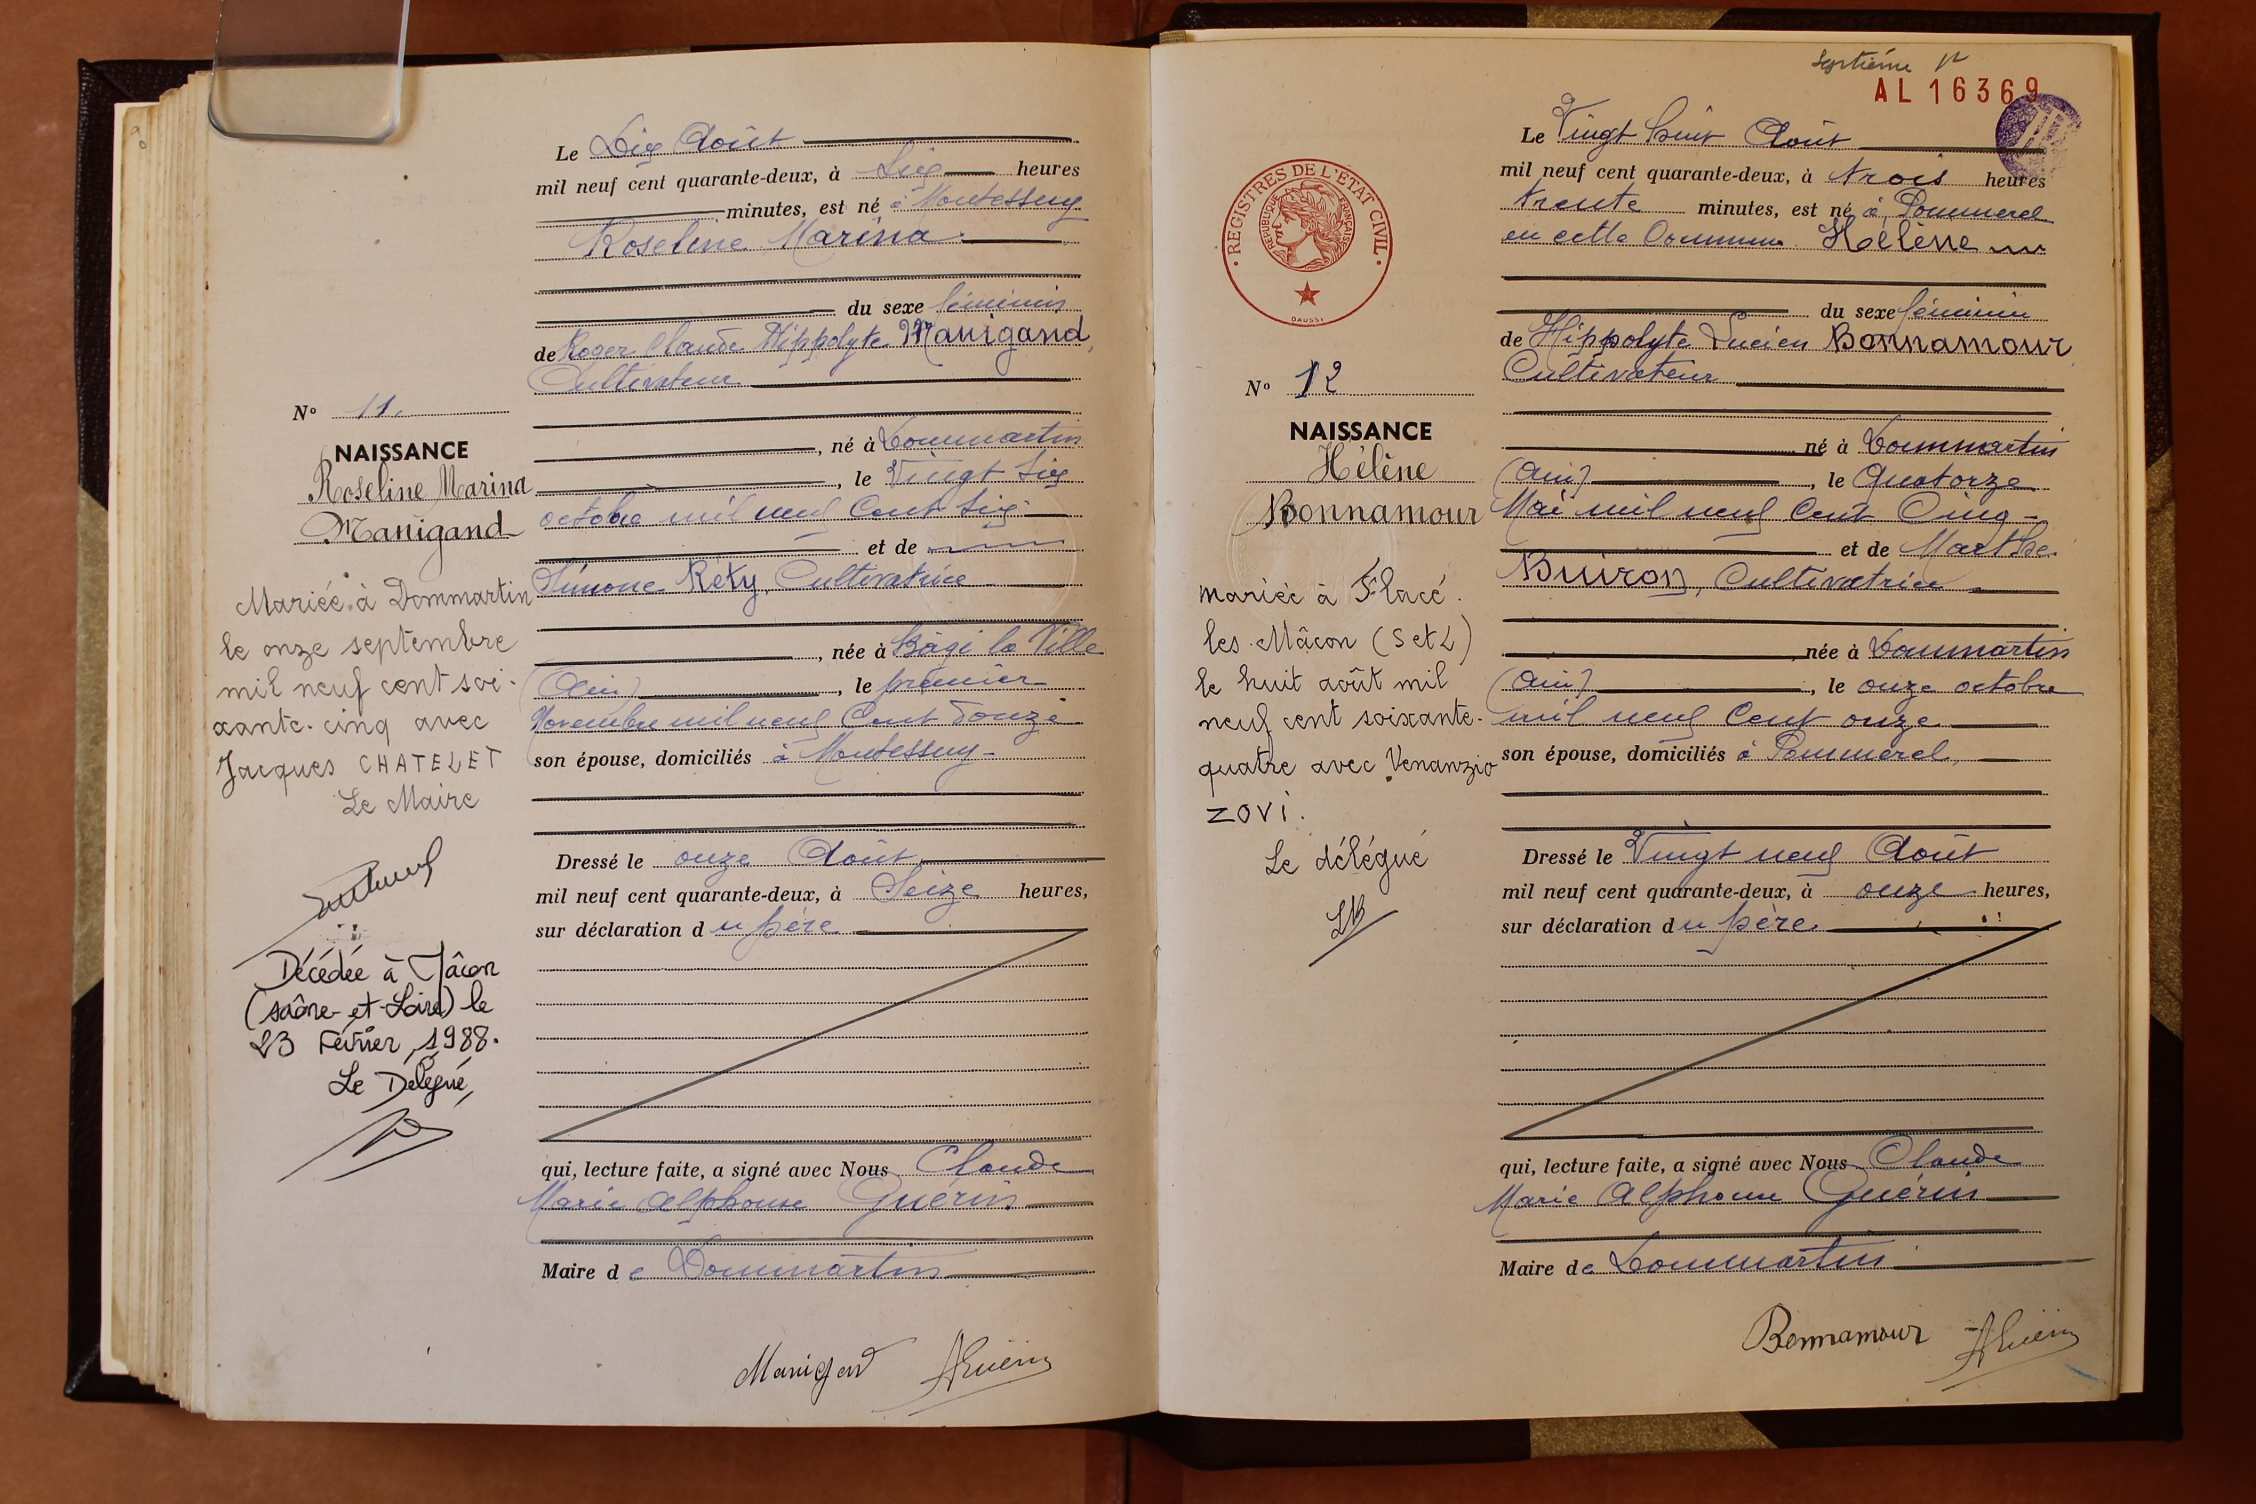 Le Dix Août
mil neuf cent quarante-deux, à Six heures
minutes, est né à Montessuy
Roseline Marina
du sexe féminin
de Roger Claude Hippolyte Manigand,
Cultivateur
N° 11.
, né à Dommartin
NAISSANCE
Roseline Marina
Manigand
, le Vingt Six
octobre mil neuf Cent Six
et de
Simone Réty, Cultivatrice
Mariée à Dommartin
le onze septembre
mil neuf cent soi-
xante-cinq avec
Jacques CHATELET
Le Maire
, née à Bâgé la Ville
(Ain) , le premier
Novembre mil neuf Cent Douze
son épouse, domiciliés à Montessuy
Dressé le onze Août
mil neuf cent quarante-deux, à Seize heures,
sur déclaration du père
Décédée à Mâcon
(Saône-et-Loire) le
23 Février 1988.
Le Délégué,
qui, lecture faite, a signé avec Nous Claude
Marie Alphonse Guérin
Maire de Dommartin
Manigand AGuérin
septième
AL 16369
REGISTRES DE L'ÉTAT CIVIL
RÉPUBLIQUE FRANÇAISE
DAUSSY
Le Vingt huit Août
mil neuf cent quarante-deux, à trois heures
trente minutes, est né à Pommerel
en cette Commune Hélène
du sexe féminin
de Hippolyte Lucien Bonnamour
Cultivateur
N° 12
NAISSANCE
Hélène
Bonnamour
né à Dommartin
(Ain) , le Quatorze
Mai mil neuf Cent Cinq
et de Marthe
Buiron, Cultivatrice
mariée à Flacé.
les-Mâcon (S et L)
le huit août mil
neuf cent soixante-
quatre avec Venanzio
ZOVI.
Le délégué
née à Dommartin
(Ain) , le onze octobre
mil neuf Cent onze
son épouse, domiciliés à Pommerel,
Dressé le Vingt neuf Août
mil neuf cent quarante-deux, à onze heures,
sur déclaration du père
qui, lecture faite, a signé avec Nous Claude
Marie Alphonse Guérin
Maire de Dommartin
Bonnamour AGuérin